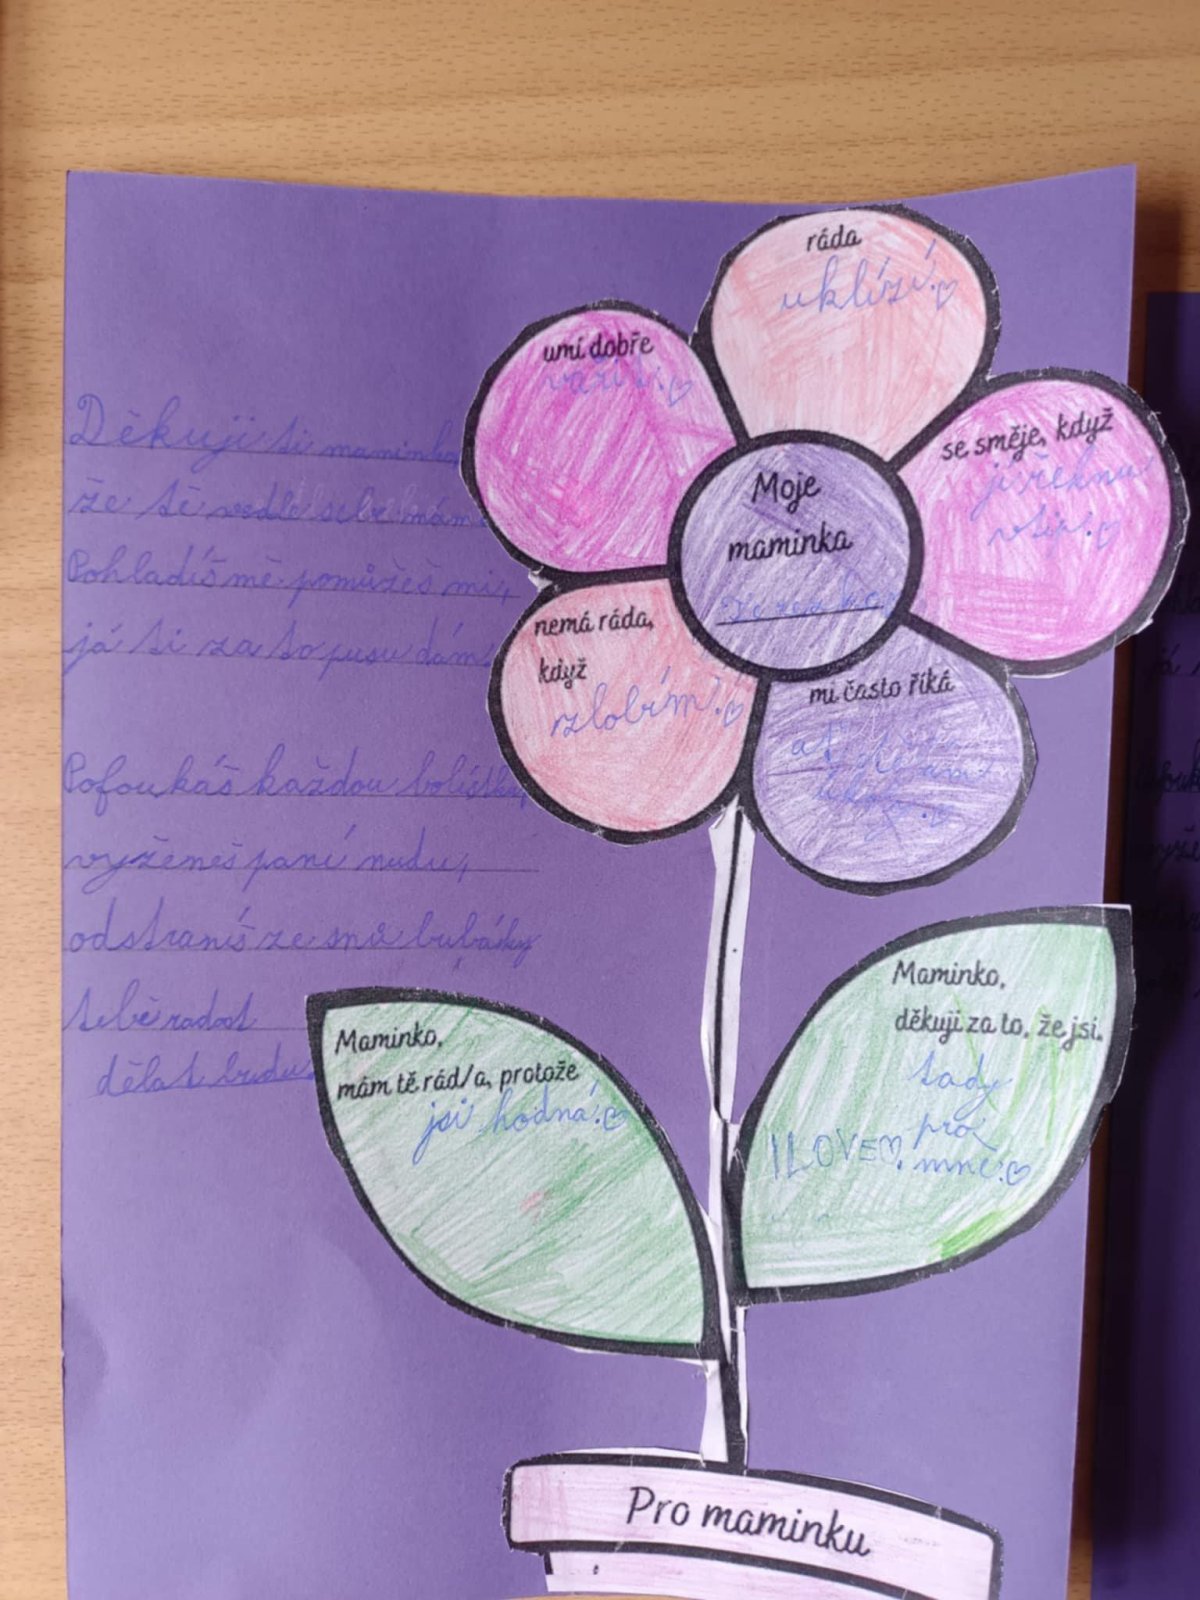 Děkuji ti maminko
že tě vedle sebe mám
Pohladíš mě pomůžeš mi,
já ti za to pusu dám.
Pofoukáš každou bolístku,
vyženeš paní nudu,
odstraníš ze snů bubáky
tobě radost
dělat budu
ráda
uklízí.♡
umí dobře
vařit.♡
se směje, když
jí řeknu
vtip.♡
Moje
maminka
nemá ráda,
když
zlobím!♡
mi často říká
ať dělám
úkoly.♡
Maminko,
mám tě rád/a, protože
jsi hodná.♡
Maminko,
děkuji za to, že jsi.
tady
pro
I LOVE♡. mne.♡
Pro maminku